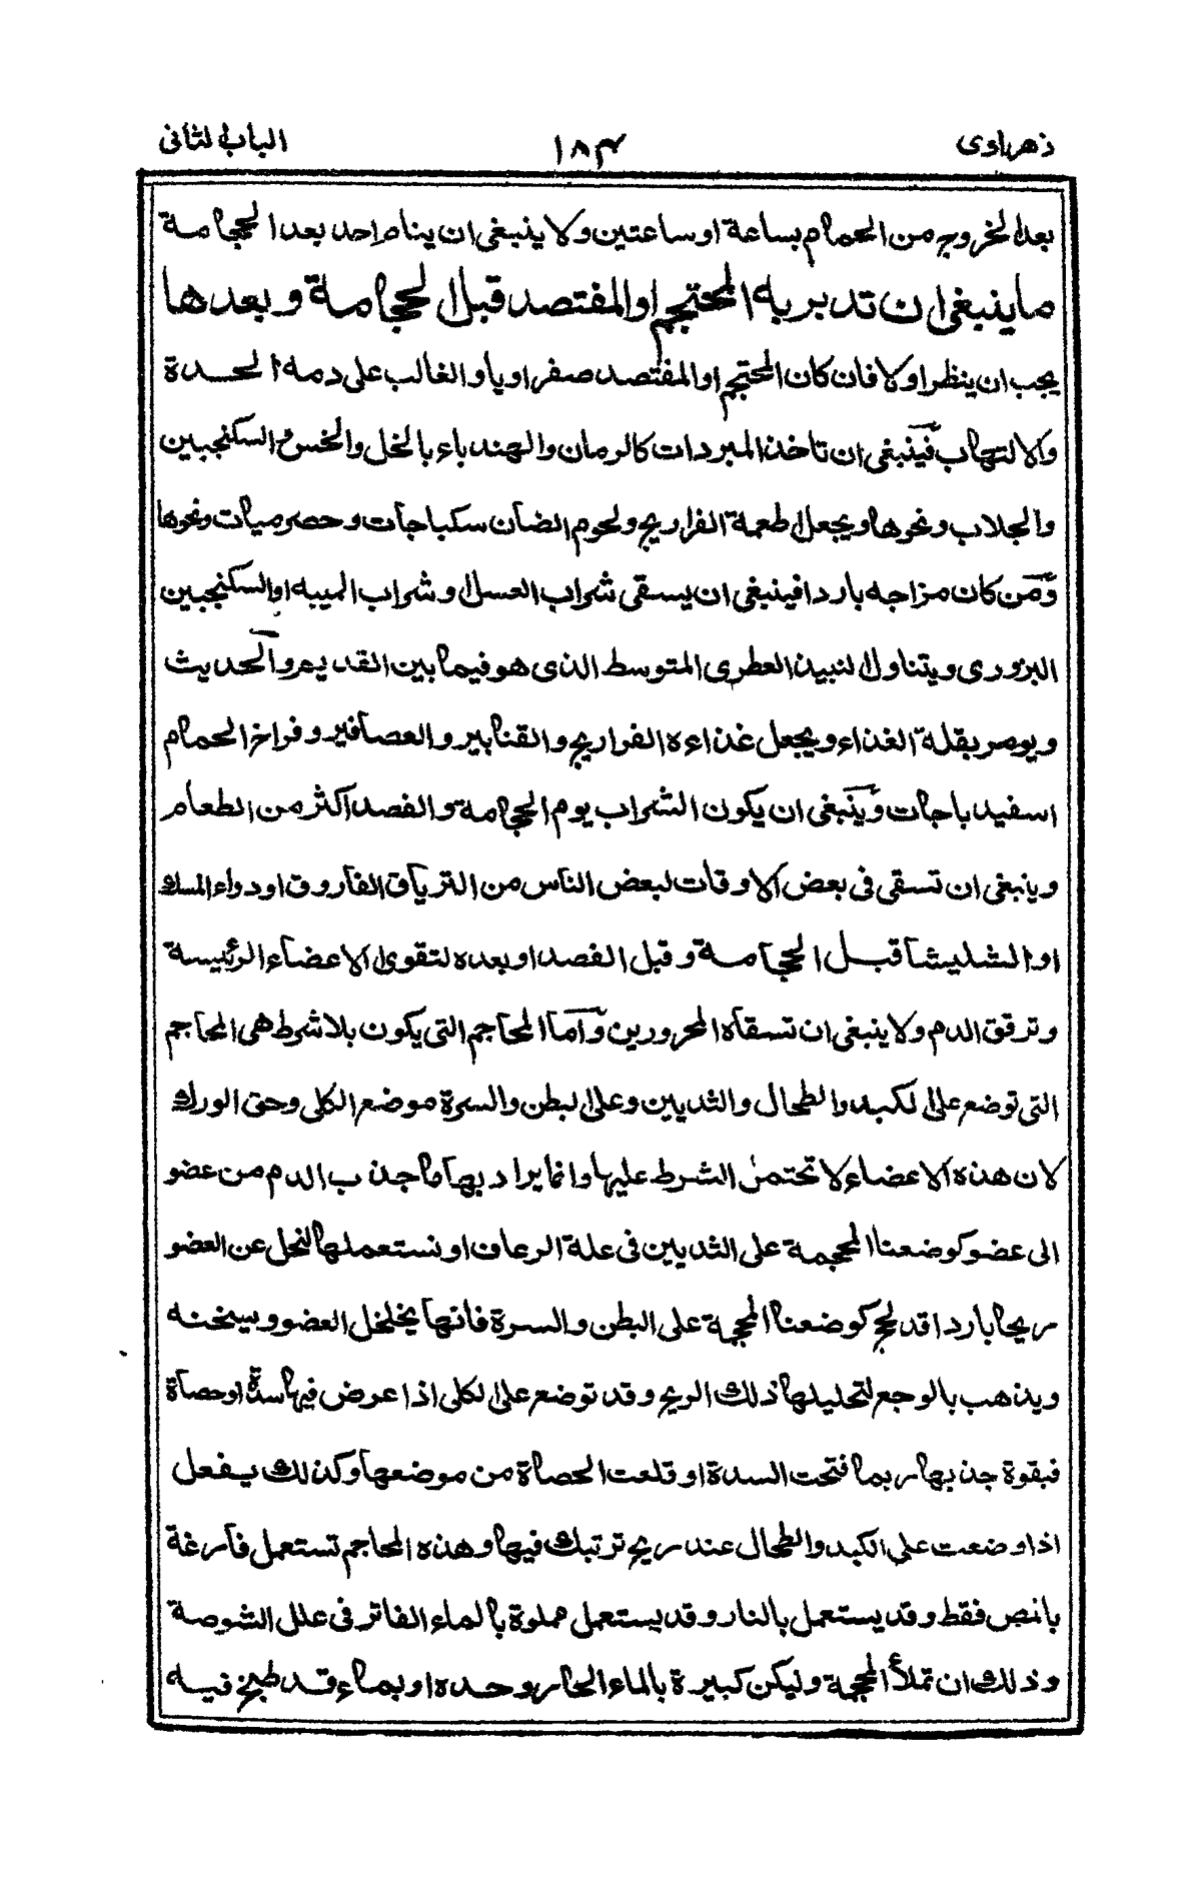 زهراوى ١٨٣ الباب الثانى
بعد الخروج من الحمام بساعة او ساعتين ولا ينبغى ان ينام احد بعد الحجامة
ما ينبغى ان تدبر به المحتجم او المفتصد قبل الحجامة و بعدها
يجب ان ينظر اولا فان كان المحتجم او المفتصد صفراويا والغالب على دمه الحدة
والالتهاب فينبغى ان تاخذ المبردات كالرمان والهندباء بالخل والخس والسكنجبين
والجلاب ونحوها ويجعل اطعمة الفراريج ولحوم الضان سكباجات و حصرميات ونحوها
ومن كان مزاجه باردا فينبغى ان يسقى شراب العسل و شراب الميبه او السكنجبين
البزورى ويتناول النبيذ العطرى المتوسط الذى هو فيما بين القديم والحديث
ويومر بقلة الغذاء ويجعل غذاءه الفراريج والقنابير والعصافير و فراخ الحمام
اسفيد باجات وينبغى ان يكون الشراب يوم الحجامة والفصد اكثر من الطعام
وينبغى ان تسقى فى بعض الاوقات لبعض الناس من الترياق الفاروق او دواء المسك
او الشليشا قبل الحجامة وقبل الفصد او بعده لتقوى الاعضاء الرئيسة
وترقق الدم ولا ينبغى ان تسقاه المحرورين واما المحاجم التى يكون بلا شرط هى المحاجم
التى توضع على الكبد والطحال والثديين وعلى البطن والسرة موضع الكلى وحق الورك
لان هذه الاعضاء لا تحتمل الشرط عليها وانما يراد بها اما جذب الدم من عضو
الى عضو كوضعنا المحجمة على الثديين فى علة الرعاف او نستعملها لنحل عن العضو
ريحا باردا قد لحج كوضعنا المحجمة على البطن والسرة فانها يخلخل العضو و يسخنه
ويذهب بالوجع لتحليلها ذلك الريح وقد توضع على الكلى اذا عرض فيها سدة او حصاة
فبقوة جذبها ربما فتحت السدة او قلعت الحصاة من موضعها وكذلك يفعل
اذا وضعت على الكبد والطحال عند ريح ترتبك فيها وهذه المحاجم تستعمل فارغة
بالمص فقط وقد يستعمل بالنار وقد يستعمل مملوة بالماء الفاتر فى علل الشوصة
وذلك ان تملأ المحجمة وليكن كبيرة بالماء الحار وحده او بماء قد طبخ فيه